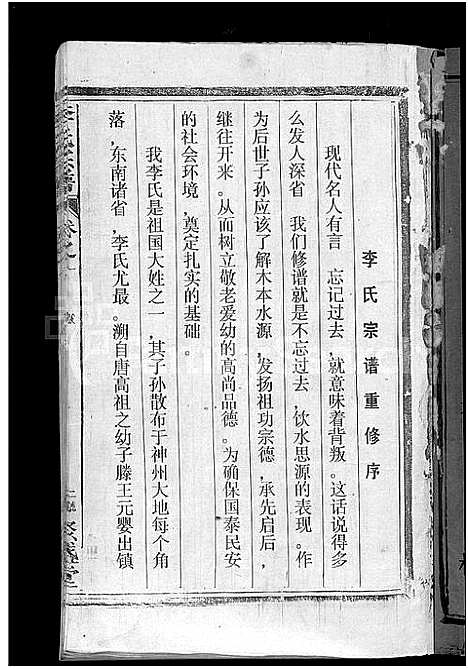 李氏宗谱重修序
现代名人有言 忘记过去，就意味着背叛。这话说得多
么发人深省 我们修谱就是不忘过去，饮水思源的表现。作
为后世子孙应该了解木本水源，发扬祖功宗德，承先启后，
继往开来。从而树立敬老爱幼的高尚品德。为确保国泰民安
的社会环境，奠定扎实的基础。
我李氏是祖国大姓之一，其子孙散布于神州大地每个角
落，东南诸省，李氏尤最。溯自唐高祖之幼子滕王元婴出镇
李氏宗谱 卷之一 序